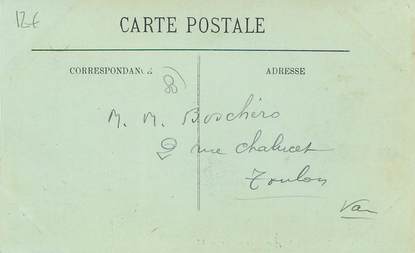 12€
CARTE POSTALE
CORRESPONDANCE
ADRESSE
M. M. Boschéro
9 rue Chalucet
Toulon
Var